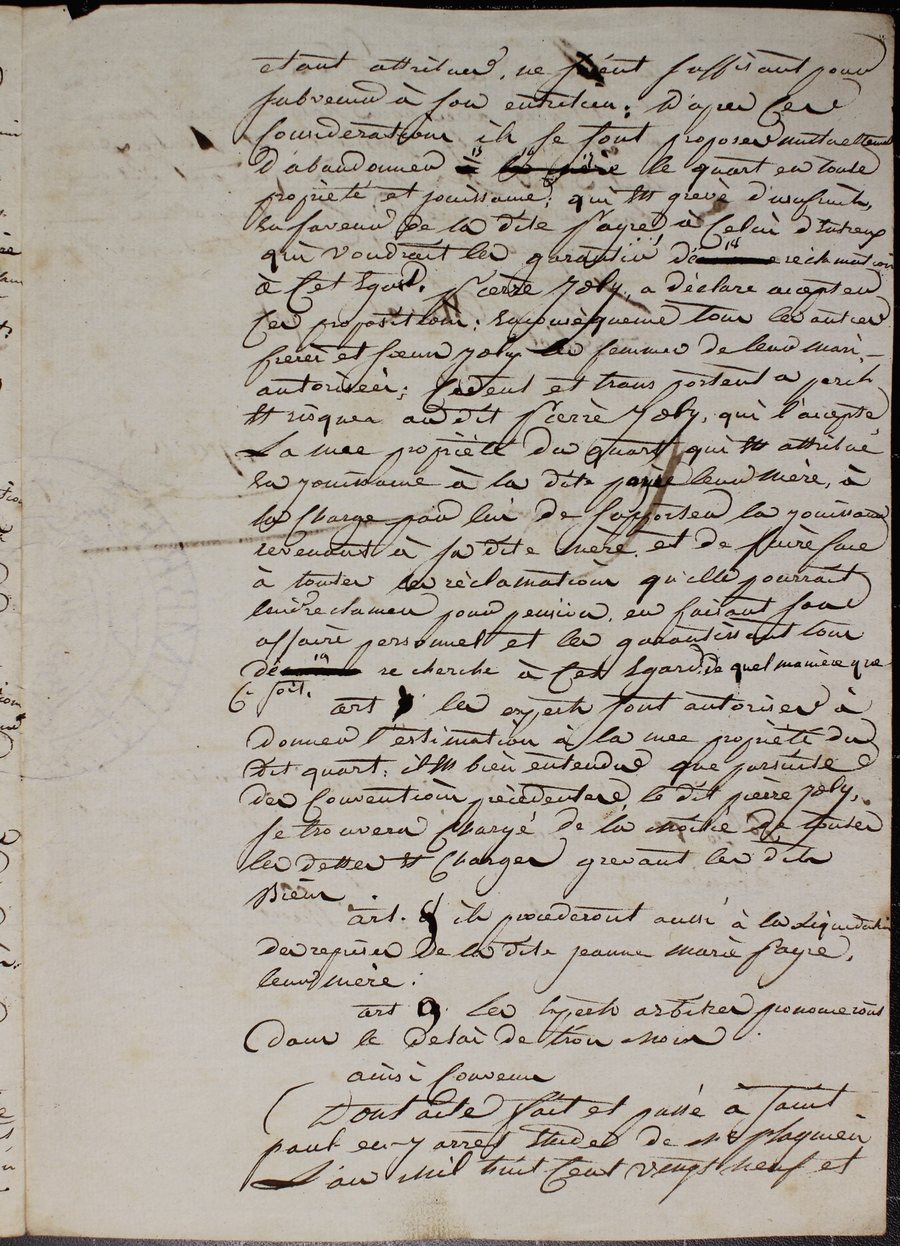 etant attribuer, ne soient suffisant pour
subvenir à son entretien. D'apres Cer
Considerations ils se sont proposer mutuellement
D'abandonner le quart en toute
propriété et jouissance, qui est grevé d'usufruit,
En faveur de la dite Fayre à Celui d'Entreux
qui voudrait les garantir de reclamation
à Cet Egard. Pierre Joly, a déclare accepter
Cer proposition; En conséquence tour ler autrer
frerer et soeur Joly ler femmer de leur mari
autoriséer; Cèdent et transportent a perils
Et risquer au dit Pierre Joly, qui l'accepte
La nue propriété du quart qui Est attribué
En jouissance à la dite leur mère, à
la Charge par lui de Supporter la jouissance
revenant à sa dite mere, et de faire face
à touter ler réclamation qu'elle pourrait
leur reclamer pour pension, en faisant son
affaire personnel et ler garantissant tour
de recherche à Cet Egard de quel manière que
Ce soit.
art 7 ler experts sont autoriser à
Donner l'estimation à la nue propriété du
Dit quart; il Est bien entendue que par suite
der Convention précédenter le dit pierre joly,
se trouvera Chargé de la moitié de touter
ler detter Et Charger grevant ler dits
Biens
art. 8 ils procederont aussi à la Liquidation
der repriser De la dite jeanne marie Fayre,
leur mère.
art 9 Ler Experts arbitrer prononceront
Dans le Delai de trois mois
ainsi Convenu
Dont acte fait et passé à Saint
paul en-yarret Etudes de Me
L'an Mil huit Cent vingt neuf et